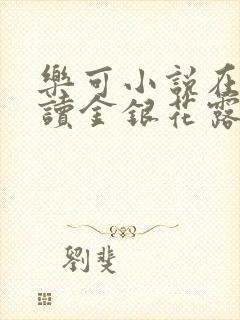 樂可小說在
讀金銀花露
劉斐